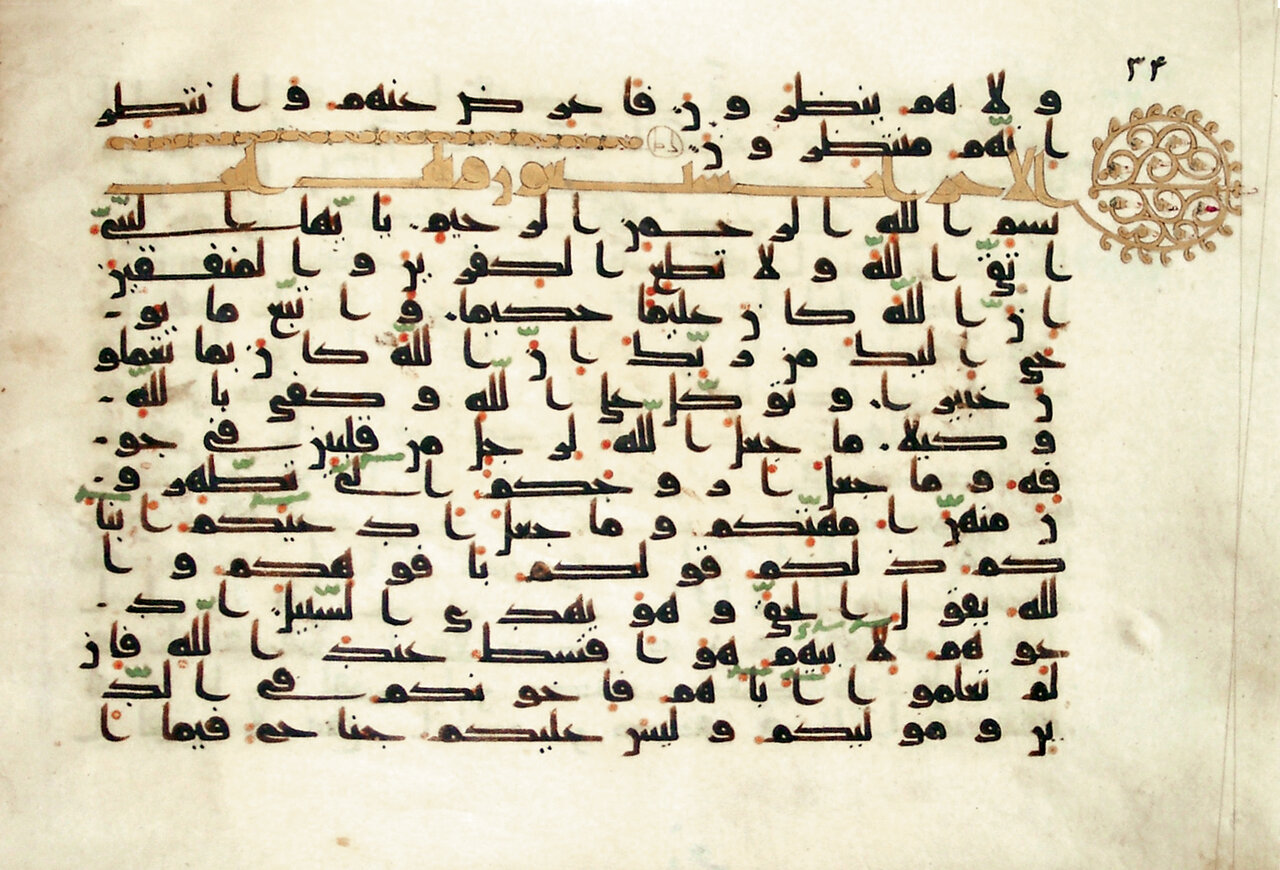 ٣۴
و لا هم ينظرون فاعرض عنهم و انتظر
انهم منتظرون
الاحزاب سبعون و ثلث ايات
بسم الله الرحمن الرحيم يايها النبي
اتق الله و لا تطع الكفرين و المنفقين
ان الله كان عليما حكيما و اتبع ما يو
حي اليك من ربك ان الله كان بما تعملو
ن خبيرا و توكل على الله و كفى بالله
و كيلا ما جعل الله لرجل من قلبين في جو
فه و ما جعل ازوجكم الي تظهرو
ن منهن امهتكم و ما جعل ادعيكم ابنا
كم ذلكم قولكم بافوهكم و ا
لله يقول الحق و هو يهدي السبيل اد
عوهم لابيهم هو اقسط عند الله فان
لم تعلموا اباهم فاخونكم في الد
ين و موليكم و ليس عليكم جناح فيما ا